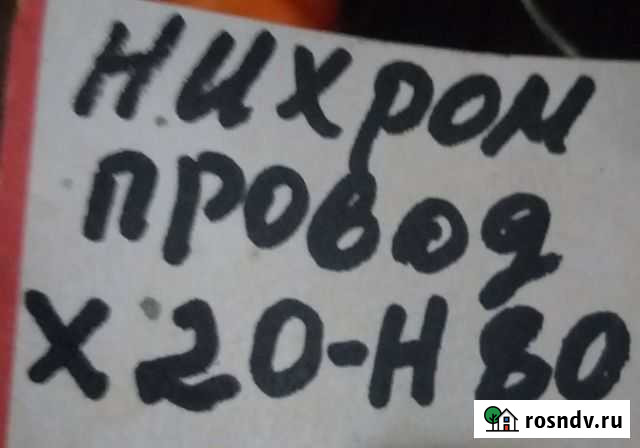 НИХРОМ
ПРОВОД
Х20-Н80
rosndv.ru